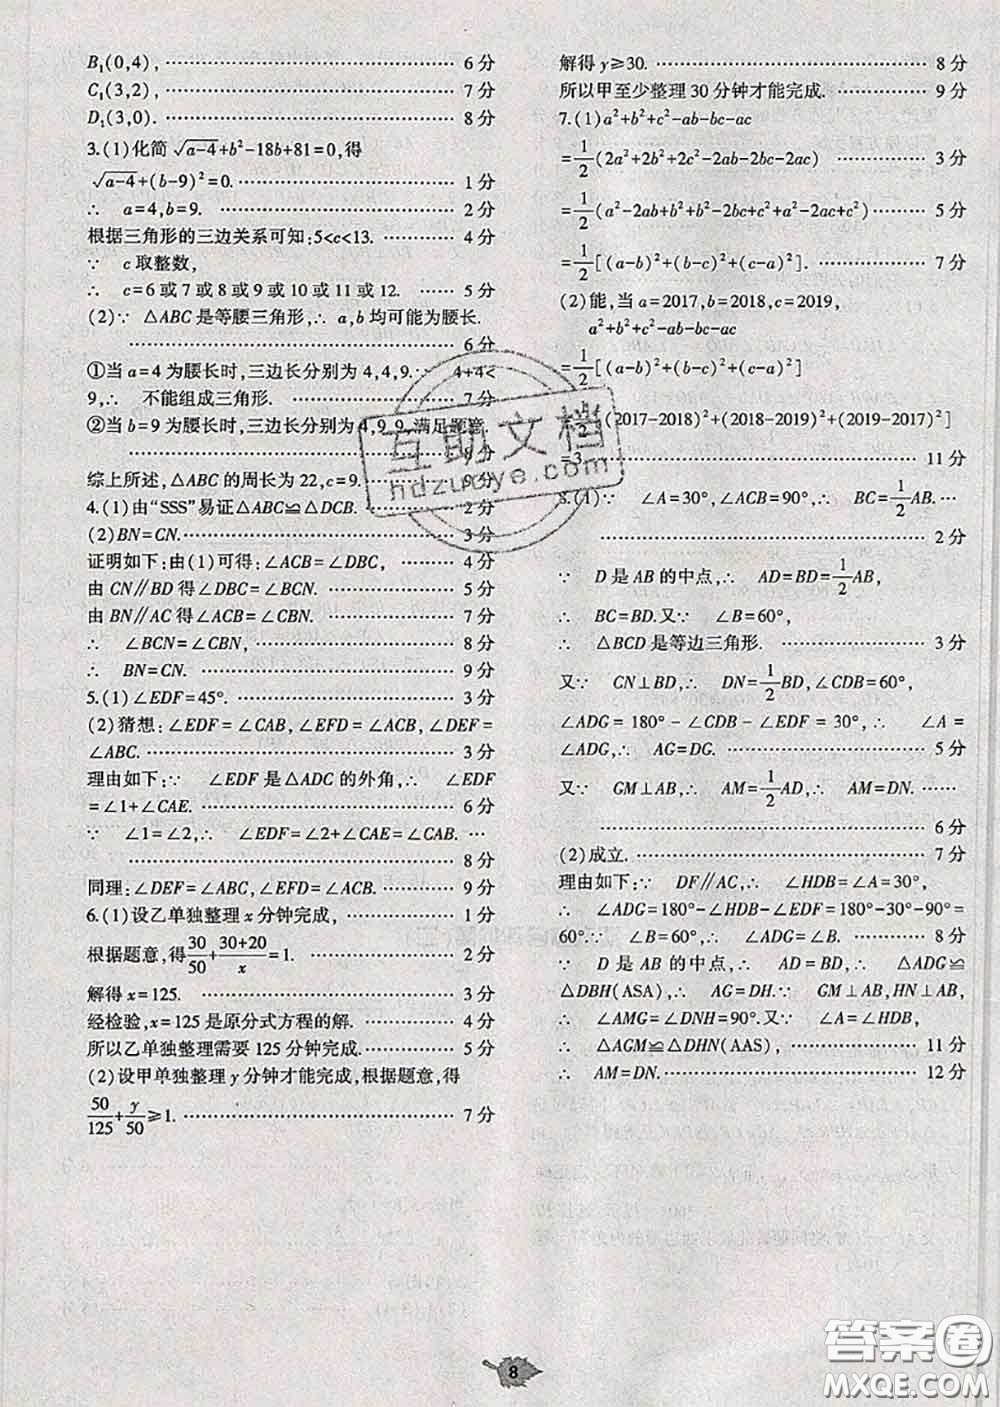 B₁(0,4), …… 6 分
C₁(3,2), …… 7 分
D₁(3,0). …… 8 分
3.(1)化简√(a-4)+b²-18b+81=0,得
√(a-4)+(b-9)²=0. …… 1 分
∴ a=4,b=9. …… 2 分
根据三角形的三边关系可知:5<c<13. …… 4 分
∵ c 取整数,
∴ c=6 或 7 或 8 或 9 或 10 或 11 或 12. …… 5 分
(2)∵ △ABC 是等腰三角形,∴ a,b 均可能为腰长.
…… 6 分
①当 a=4 为腰长时,三边长分别为 4,4,9.∵ 4+4<
9,∴ 不能组成三角形. …… 7 分
②当 b=9 为腰长时,三边长分别为 4,9,9.满足题意.
…… 8 分
综上所述,△ABC 的周长为 22,c=9. …… 9 分
4.(1)由“SSS”易证△ABC≌△DCB. …… 2 分
(2)BN=CN. …… 3 分
证明如下:由(1)可得:∠ACB=∠DBC, …… 4 分
由 CN∥BD 得∠DBC=∠BCN. …… 5 分
由 BN∥AC 得∠ACB=∠CBN. …… 7 分
∴ ∠BCN=∠CBN, …… 8 分
∴ BN=CN. …… 9 分
5.(1)∠EDF=45°. …… 3 分
(2)猜想:∠EDF=∠CAB,∠EFD=∠ACB,∠DEF=
∠ABC. …… 3 分
理由如下:∵ ∠EDF 是△ADC 的外角,∴ ∠EDF
=∠1+∠CAE. …… 6 分
∵ ∠1=∠2,∴ ∠EDF=∠2+∠CAE=∠CAB. …
…… 8 分
同理:∠DEF=∠ABC,∠EFD=∠ACB. …… 9 分
6.(1)设乙单独整理 x 分钟完成, …… 1 分
根据题意,得30/50+(30+20)/x=1. …… 2 分
解得 x=125. …… 3 分
经检验,x=125 是原分式方程的解. …… 4 分
所以乙单独整理需要 125 分钟完成. …… 5 分
(2)设甲单独整理 y 分钟才能完成,根据题意,得
50/125+y/50≥1. …… 7 分
解得 y≥30. …… 8 分
所以甲至少整理 30 分钟才能完成. …… 9 分
7.(1)a²+b²+c²-ab-bc-ac
=1/2(2a²+2b²+2c²-2ab-2bc-2ac) …… 3 分
=1/2(a²-2ab+b²+b²-2bc+c²+a²-2ac+c²) …… 5 分
=1/2[(a-b)²+(b-c)²+(c-a)²]. …… 7 分
(2)能,当 a=2017,b=2018,c=2019,
a²+b²+c²-ab-bc-ac
=1/2[(a-b)²+(b-c)²+(c-a)²]
=1/2[(2017-2018)²+(2018-2019)²+(2019-2017)²]
=3. …… 11 分
8.(1)∵ ∠A=30°,∠ACB=90°,∴ BC=1/2AB. …
…… 2 分
∵ D 是 AB 的中点,∴ AD=BD=1/2AB,
∴ BC=BD.又∵ ∠B=60°,
∴ △BCD 是等边三角形. …… 3 分
又∵ CN⊥BD,∴ DN=1/2BD,∠CDB=60°,
∠ADG=180°-∠CDB-∠EDF=30°,∴ ∠A=
∠ADG,∴ AG=DG. …… 5 分
又∵ GM⊥AB,∴ AM=1/2AD,∴ AM=DN. ……
…… 6 分
(2)成立. …… 7 分
理由如下:∵ DF∥AC,∴ ∠HDB=∠A=30°,
∴ ∠ADG=180°-∠HDB-∠EDF=180°-30°-90°=
60°.∵ ∠B=60°,∴ ∠ADG=∠B. …… 8 分
∵ D 是 AB 的中点,∴ AD=BD,∴ △ADG≌
△DBH(ASA),∴ AG=DH.∵ GM⊥AB,HN⊥AB,
∴ ∠AMG=∠DNH=90°.又∵ ∠A=∠HDB,
∴ △AGM≌△DHN(AAS), …… 11 分
∴ AM=DN. …… 12 分
互助文档
hdzuoye.com
8
答案圈
MXQE.COM